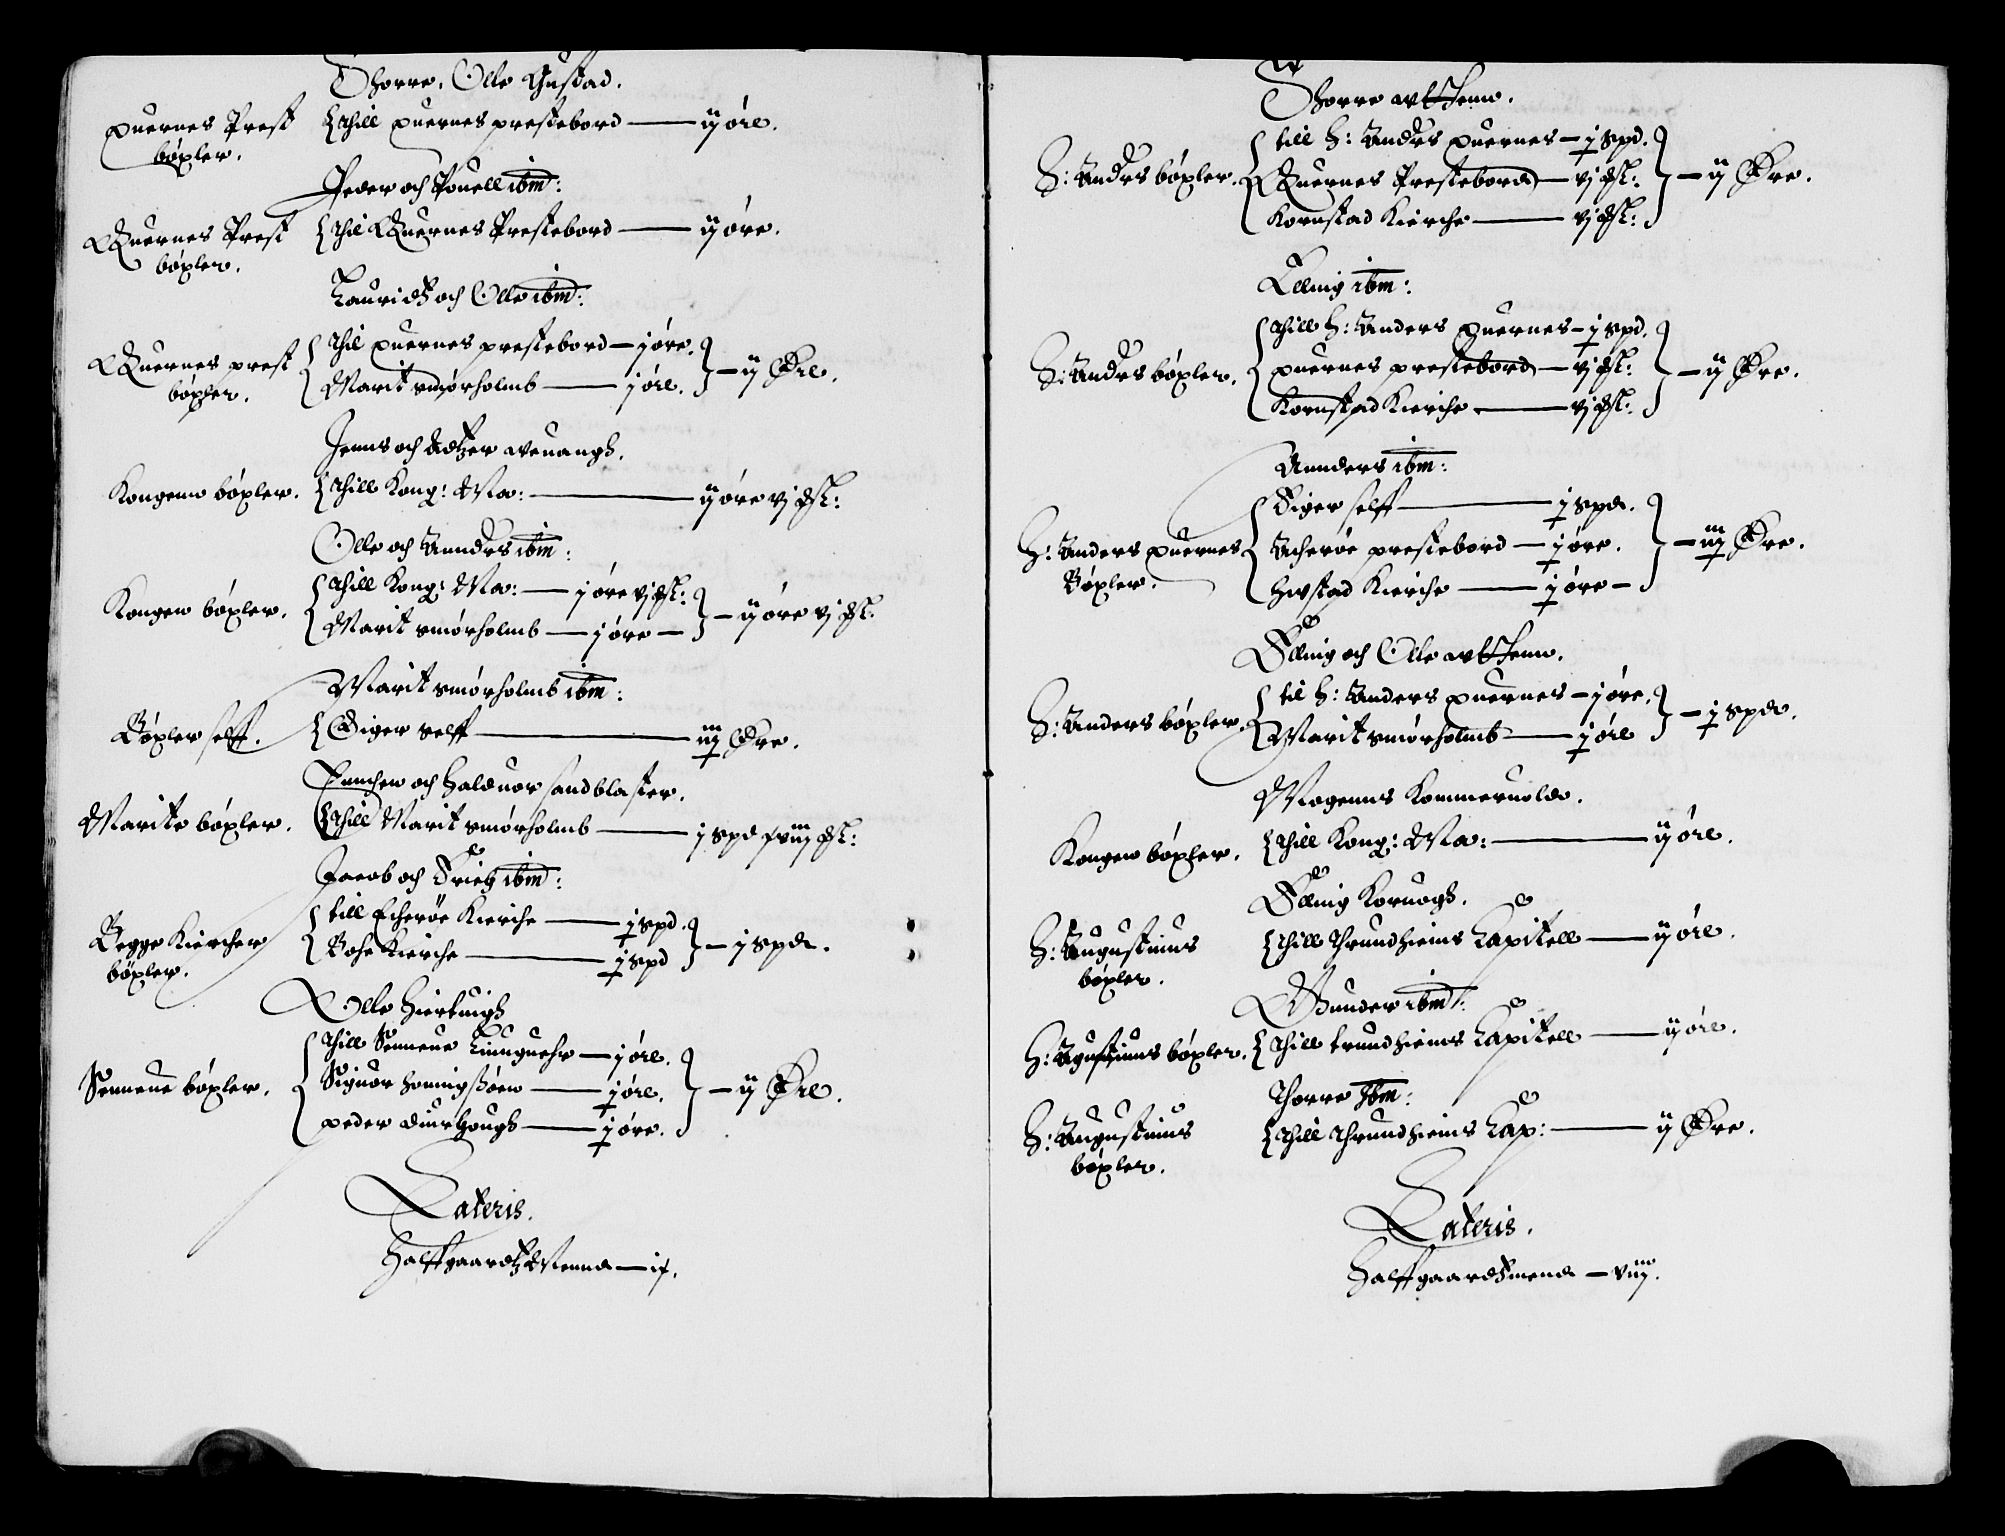 Thorre, Olle Gustad.
quernes Prest bøxler. { thill quernes prestebord — ij øre.
Peder och Pouell ibm:
Quernes Prest bøxler. { thil Quernes Prestebord — ij øre.
Lauridtz och Olle ibm:
Quernes prest bøxler. { thil quernes prestebord — j øre.
Marit smørholmb — j øre. } — ij Øre.
Jenns och
Kongenn bøxler. { thill Kong: Ma: — ij øre vj
Olle och Anndrs ibm:
Kongen bøxler. { thill Kong: Ma: — j øre vj
Marit smørholmb — j øre — } — ij øre vj
Marit smørholmb ibm:
Bøxler self. { Eiger self — iij Øre.
och Halduor sandblaster.
Marite bøxler. { thill Marit smørholmb — j spd
Jacob och ibm:
Begge Kiercher bøxler. { till Echerøe Kierche — j spd.
Bohe Kierche — j spd } — j spd.
Olle
Senneue bøxler. { thill Senneue — j øre.
Signor — j øre.
peder — j øre. } — ij Øre.
Lateris.
Halffgaardtz Mennd — ix.
Thorre
H: Andrs bøxler. { till H: Andrs quernes — j spd.
Quernes Prestebord — vj
Kornstad Kierche — vj } — ij Øre.
Elling ibm:
H: Andrs bøxler. { thill H: Anders quernes — j spd.
quernes prestebord — vj
Kornstad Kierche — vj } — ij Øre.
Annders ibm:
H: Anders quernes Bøxler. { Eiger self — j spd.
Acherøe prestebord — j øre.
Kierche — j øre — } — iij Øre.
Elling och Olle
H: Anders bøxler. { til H: Anders quernes — j øre.
Marit smørholmb — j øre } — j spd.
Mogenns
Kongen bøxler. { thill Kong: Ma: — ij øre.
Elling
H: Augustinus bøxler. { thill Thrundhiems Kapitell — ij øre.
Gunder ibm:
H: Agustinus bøxler. { thill trundhiems Kapitell — ij øre.
Thorre Ibm:
H: Augustinus bøxler. { thill Thrundhiems Kap: — ij Øre.
Lateris.
Halffgaardtzmend — viij.